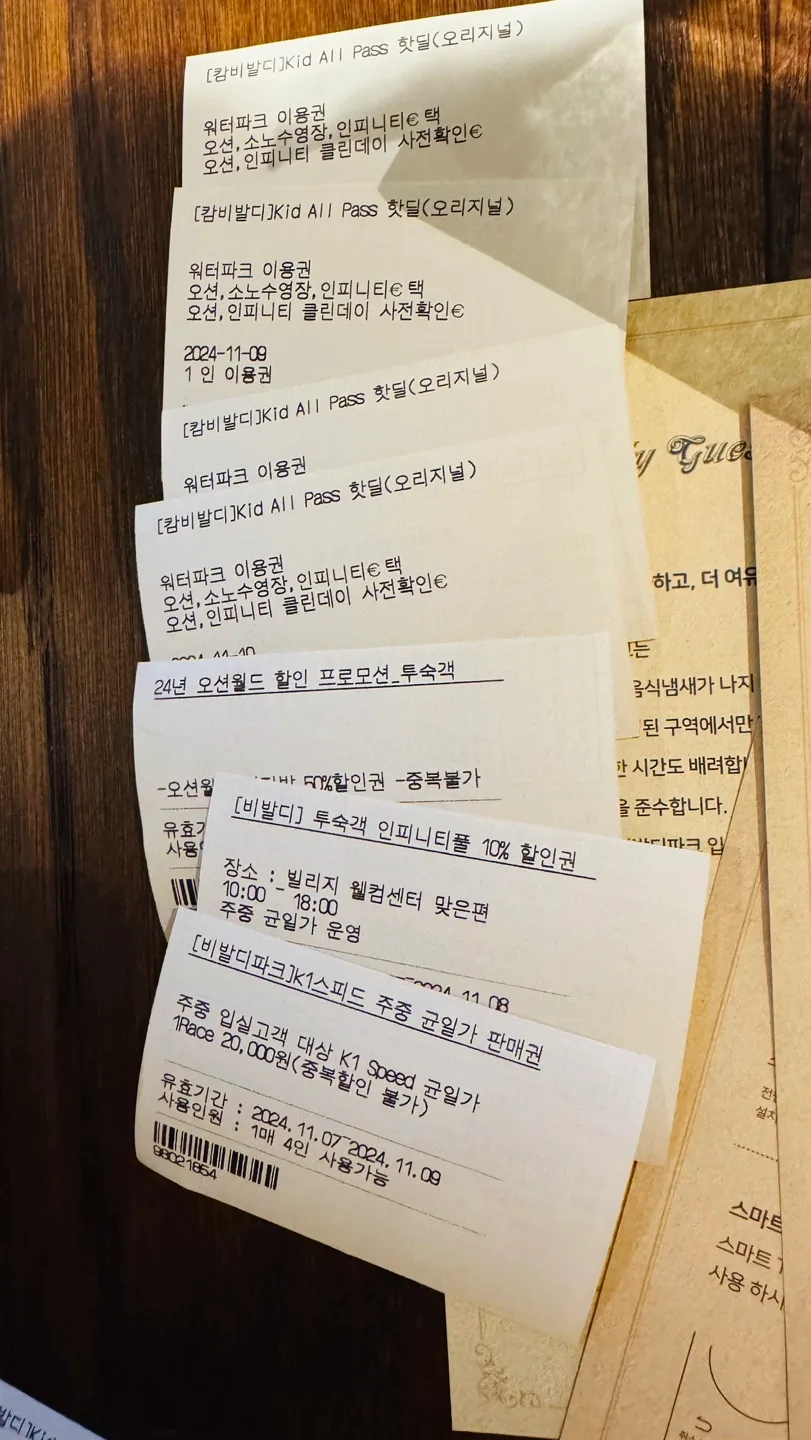 [캄비발디]Kid All Pass 핫딜(오리지널)
워터파크 이용권
오션,소노수영장,인피니티€ 택
오션,인피니티 클린데이 사전확인€
[캄비발디]Kid All Pass 핫딜(오리지널)
워터파크 이용권
오션,소노수영장,인피니티€ 택
오션,인피니티 클린데이 사전확인€
2024-11-09
1 인 이용권
[캄비발디]Kid All Pass 핫딜(오리지널)
워터파크 이용권
[캄비발디]Kid All Pass 핫딜(오리지널)
워터파크 이용권
오션,소노수영장,인피니티€ 택
오션,인피니티 클린데이 사전확인€
24년 오션월드 할인 프로모션_투숙객
-오션월 50%할인권 -중복불가
유효기
사용
[비발디] 투숙객 인피니티풀 10% 할인권
장소 : 빌리지 웰컴센터 맞은편
10:00 - 18:00
주중 균일가 운영
2024.11.08
[비발디파크]K1스피드 주중 균일가 판매권
주중 입실고객 대상 K1 Speed 균일가
1Race 20,000원(중복할인 불가)
유효기간 : 2024.11.07~2024.11.09
사용인원 : 1매 4인 사용가능
98021854
y Gues
하고, 더 여유
음식냄새가 나지
된 구역에서만
한 시간도 배려합니
을 준수합니다.
전
설치
스마트
스마트 T
사용 하시